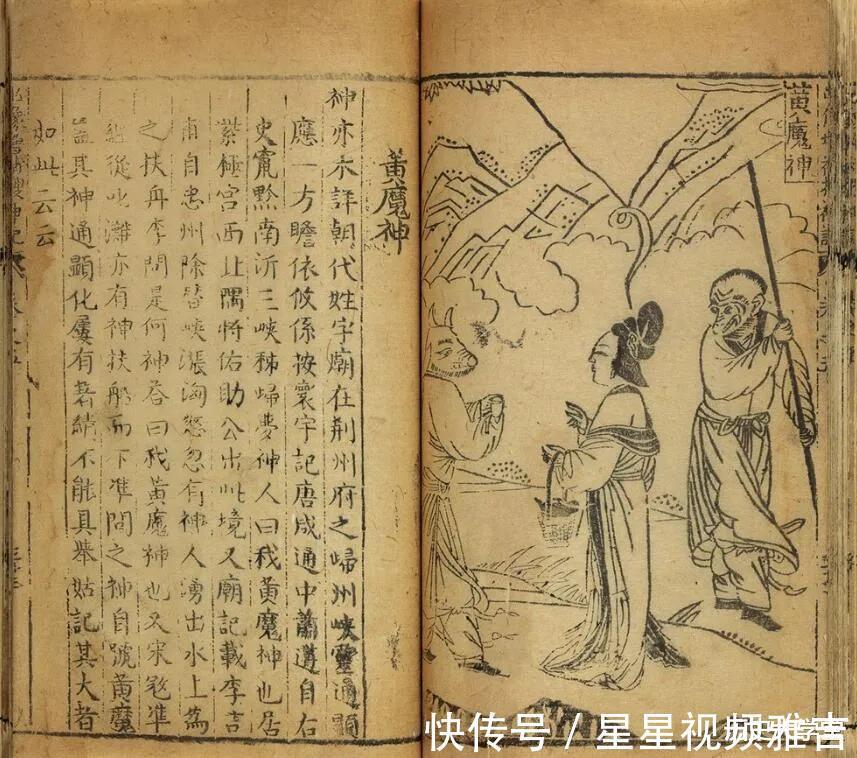 黃魔神
黃魔神
神亦不詳朝代姓字廟在荆州府之歸州峽靈通顯
應一方瞻依攸係按寰宇記唐咸通中蕭遘自右
史竄黔南泝三峽秭歸夢神人曰我黃魔神也居
紫極宮西北隅將佑助公出此境又廟記載李吉
甫自忠州除替峽漲洶怒忽有神人湧出水上為
之扶舟李問是何神答曰我黃魔神也又宋寇準
經從叱灘亦有神扶船而下準問之神自號黃魔
蓋其神通顯化屢有著績不能具舉姑記其大者
如此云云
快传号/星星视频雅言